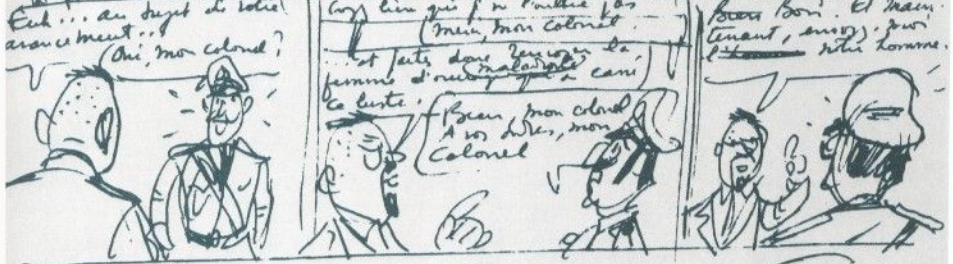 Euh... au sujet de votre
avancement...
Oui, mon colonel?
Croyez bien que je n'oublie pas
Merci, mon colonel
... et faites donc renvoyer la
femme d'ouvrage qui a cassé
ce buste.
Bien, mon colonel
A vos ordres, mon
colonel
Bien Bon. Et main-
tenant, envoyez-moi
l'homme. notre homme.